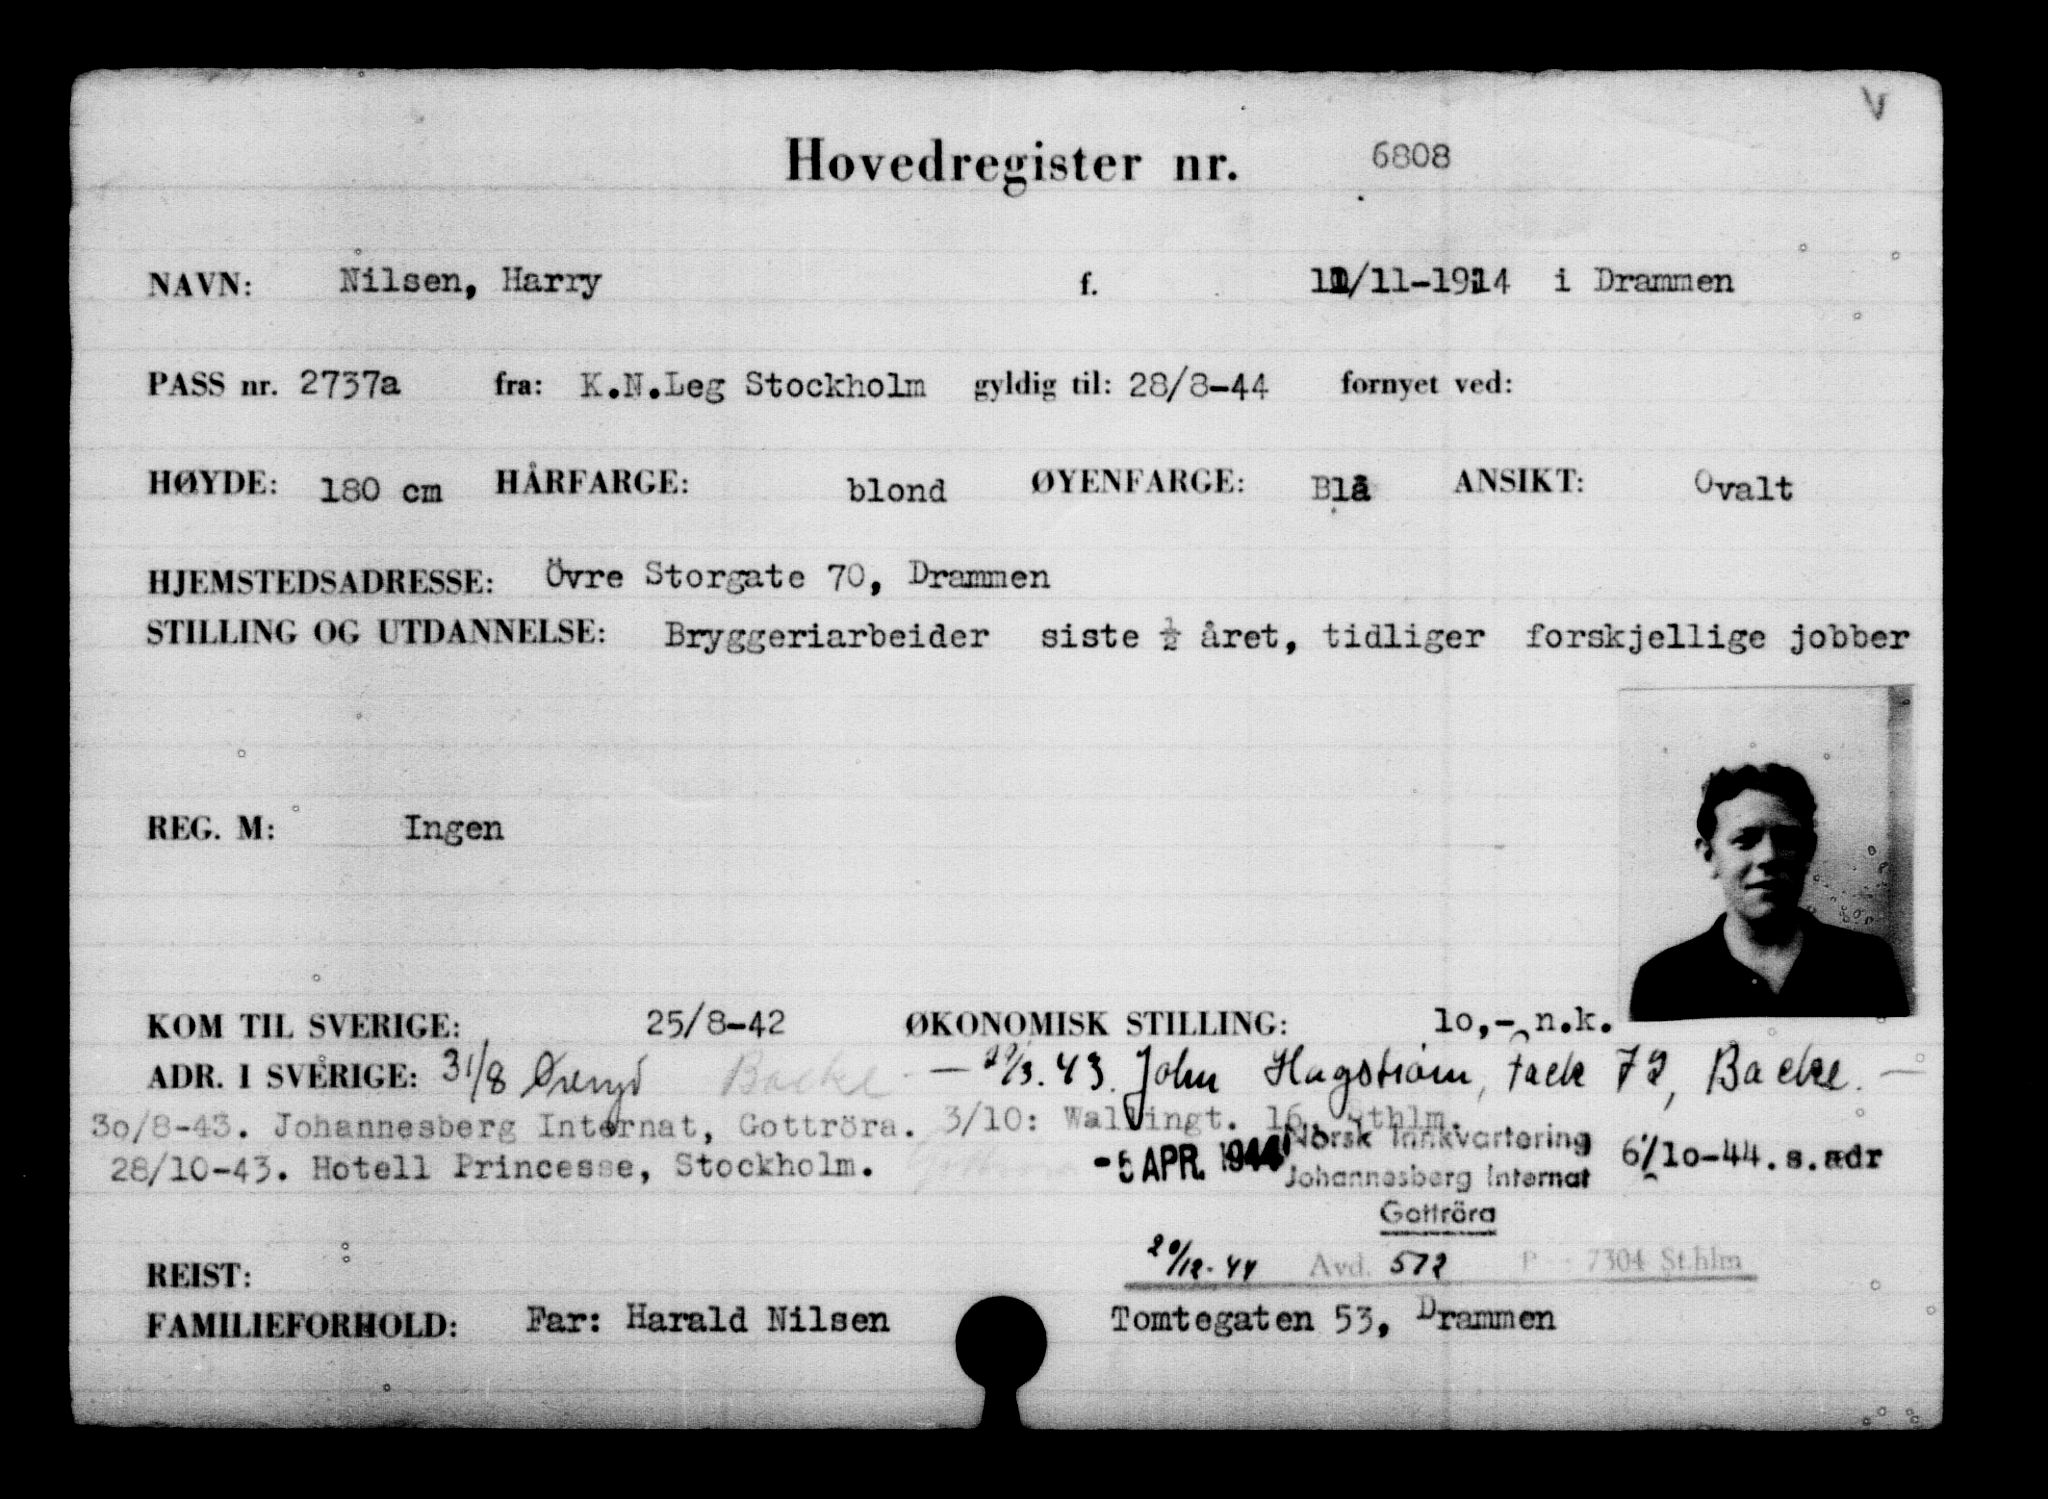 V
Hovedregister nr. 6808
NAVN: Nilsen, Harry f. 11/11-1914 i Drammen
PASS nr. 2737a fra: K.N.Leg Stockholm gyldig til: 28/8-44 fornyet ved:
HØYDE: 180 cm HÅRFARGE: blond ØYENFARGE: Blå ANSIKT: Ovalt
HJEMSTEDSADRESSE: Övre Storgate 70, Drammen
STILLING OG UTDANNELSE: Bryggeriarbeider siste ½ året, tidliger forskjellige jobber
REG. M: Ingen
KOM TIL SVERIGE: 25/8-42 ØKONOMISK STILLING: 10,- n.k.
ADR. I SVERIGE: 31/8 Öreryd Backe — /3.43. John Hagström, Fack 72, Backe. —
30/8-43. Johannesberg Internat, Gottröra. 3/10: Wallingt. 16, Sthlm.
28/10-43. Hotell Princesse, Stockholm. -5 APR. 1944 Norsk Innkvartering 6/10-44. s. adr
Johannesberg Internat
Gottröra
20/12-44 Avd. 572 P 7304 Sthlm
REIST:
FAMILIEFORHOLD: Far: Harald Nilsen Tomtegaten 53, Drammen